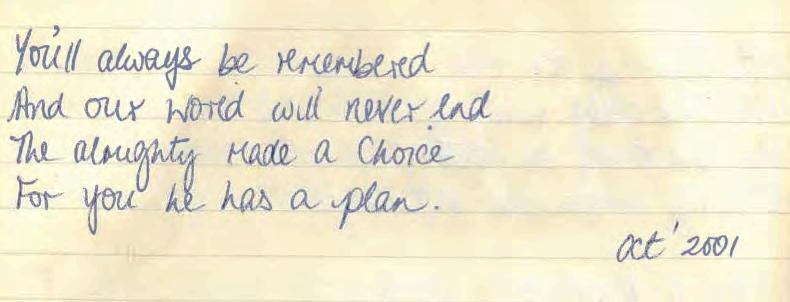 You'll always be remembered
And our world will never end
The almighty made a Choice
For you he has a plan.
Oct' 2001